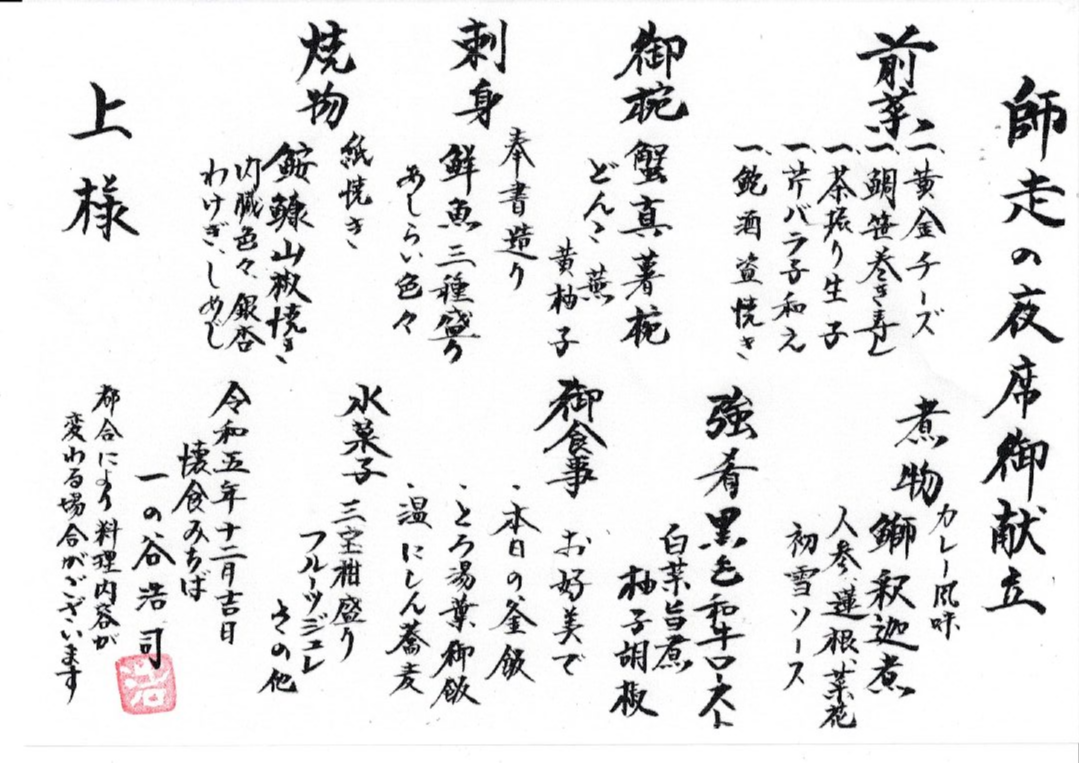 師走の夜席御献立
前菜
一、黄金チーズ
一、鯛笹巻き寿し
一、茶振り生子
一、芹バラ子和え
一、鮑酒盗焼き
御椀
蟹真薯椀
どんこ 蕪
黄柚子
刺身
奉書造り
鮮魚三種盛り
あしらい色々
焼物
紙焼き
鮟鱇山椒焼き
内臓色々、銀杏
わけぎ、しめじ
上様
煮物
カレー風味
鰤釈迦煮
人参、蓮根、菜花
初雪ソース
強肴
黒毛和牛ロースト
白菜旨煮
柚子胡椒
御食事
お好美で
・本日の釜飯
・とろ湯葉御飯
・温にしん蕎麦
水菓子
三宝柑盛り
フルーツジュレ
その他
令和五年十二月吉日
懐食みちば
一の谷浩司
都合により料理内容が
変わる場合がございます